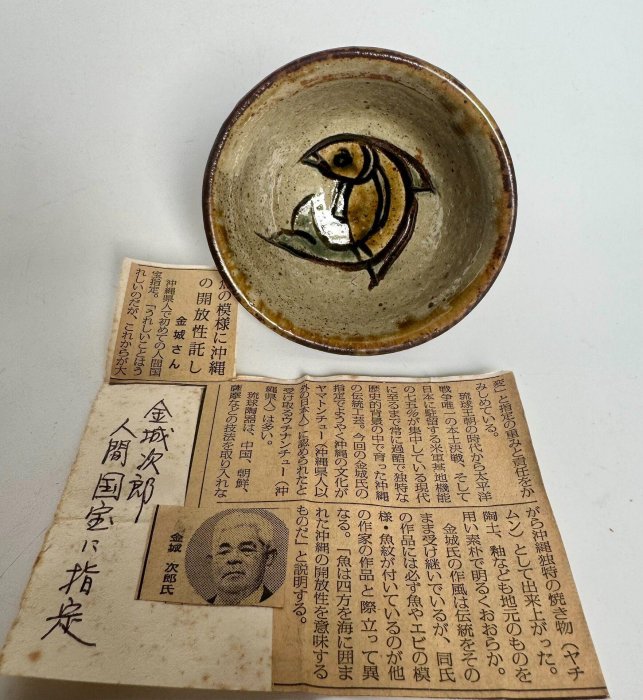 魚の模様に沖縄
の開放性託し
金城さん
沖縄県人で初めての人間国
宝指定。「うれしいことはう
れしいのだが、これからが大
変」と指定の重みと責任をか
みしめている。
琉球王朝の時代から太平洋
戦争唯一の本土決戦、そして
日本に駐留する米軍基地機能
の七五%が集中している現代
に至るまで常に過酷で独特な
歴史的背景の中で育った沖縄
の伝統工芸。今回の金城氏の
指定でようやく沖縄の文化が
ヤマトンチュー（沖縄県人以
外の日本人）に認められたと
受け取るウチナンチュー（沖
縄県人）は多い。
琉球陶器は、中国、朝鮮、
薩摩などの技法を取り入れな
がら沖縄独特の焼き物（ヤチ
ムン）として出来上がった。
陶土、釉なども地元のものを
用い素朴で明るくおおらか。
金城氏の作風は伝統をその
まま受け継いでいるが、同氏
の作品には必ず魚やエビの模
様・魚紋が付いているのが他
の作家の作品と際立って異
なる。「魚は四方を海に囲ま
れた沖縄の開放性を意味する
ものだ」と説明する。
金城 次郎氏
金城次郎
人間国宝に指定